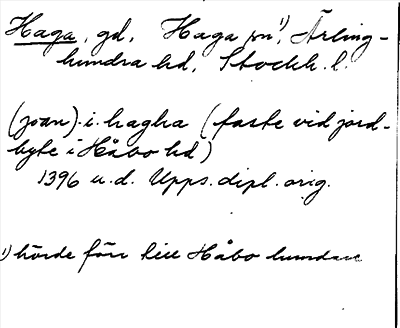 Haga, gd, Haga sn¹⁾, Ärling-
hundra hd, Stockh. l.
(joan) i hagha (faste vid jord-
byte i Håbo hd)
1396 u.d. Upps. dipl. orig.
¹⁾ hörde förr till Håbo hundare